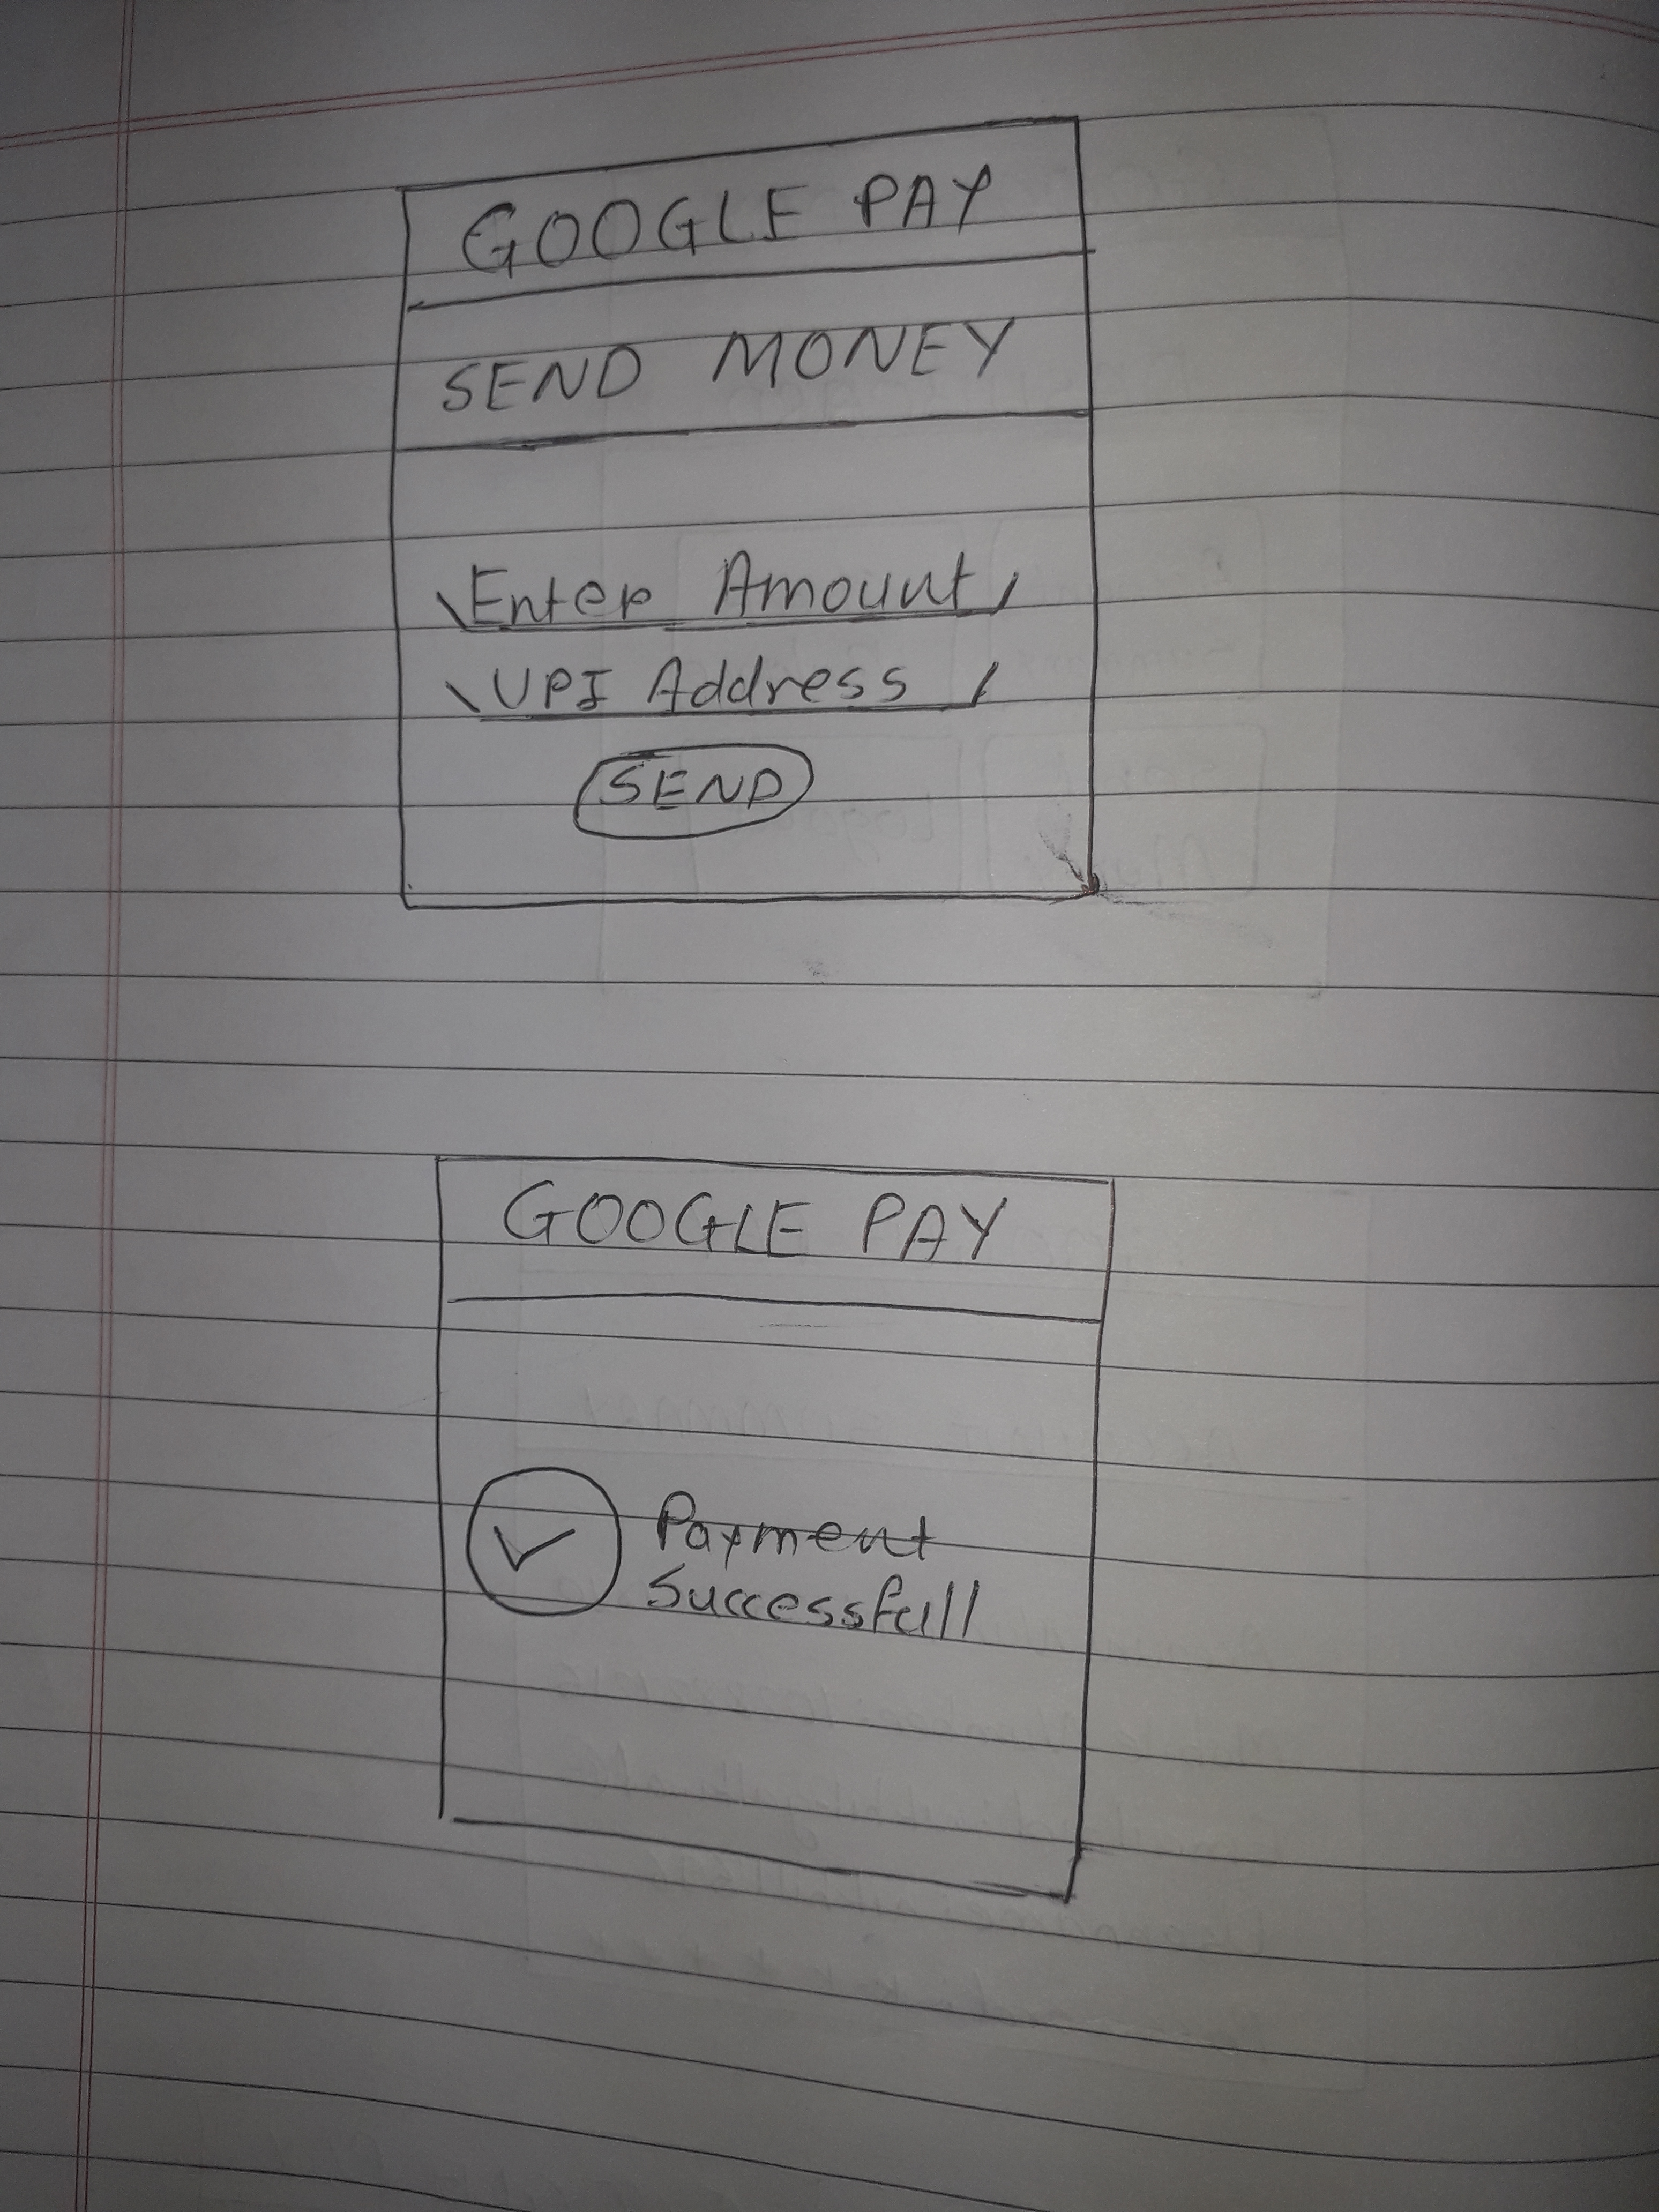 GOOGLE PAY
SEND MONEY
Enter Amount
UPI Address
SEND
GOOGLE PAY
Payment
Successfull